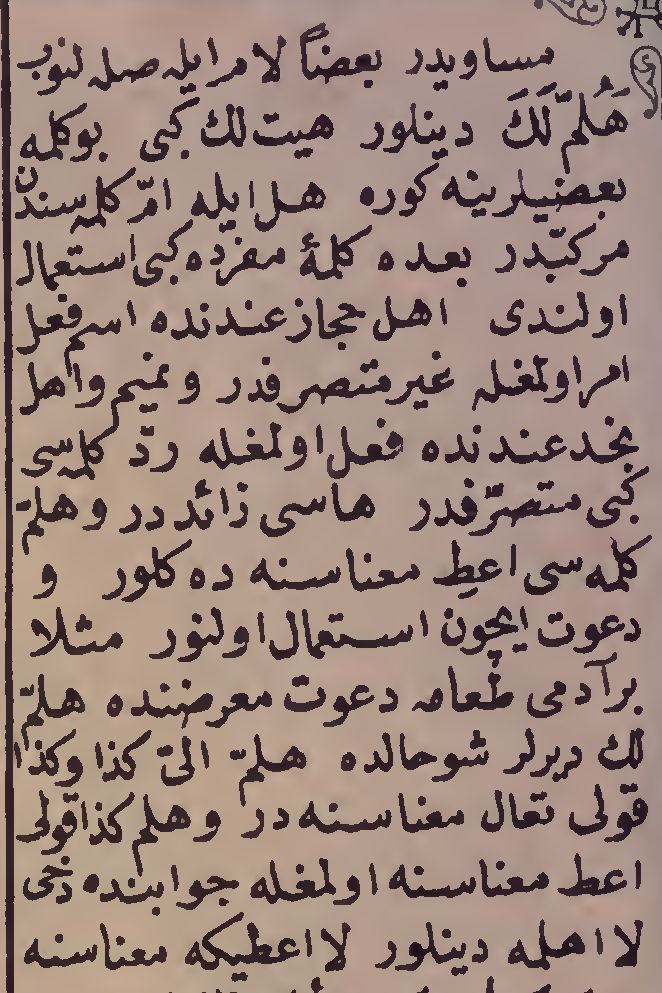 مساويدر بعضاً لام ايله صله لنوب
هَلُمَّ لَكَ دينلور هيت لك كبى بو كلمه
بعضيلرينه كوره هل ايله امّ كلمه سندن
مركبّدر بعده كلمۀ مفرده كبى استعمال
اولندى اهل حجاز عندنده اسم فعل
امر اولمغله غير متصرفدر و تميم و اهل
نجد عندنده فعل اولمغله ردّ كلمه سى
كبى متصرّفدر هاسى زائد در و هلمّ
كلمه سى اعطِ معناسنه ده كلور و
دعوت ايچون استعمال اولنور مثلا
بر آدمى طُعامه دعوت معرضنده هلمّ
لك ديرلر شو حالده هلمّ الىّ كذا وكذا
قولى تعال معناسنه در و هلم كذا قولى
اعط معناسنه اولمغله جوابنده دخى
لا اهلمه دينلور لا اعطيكه معناسنه